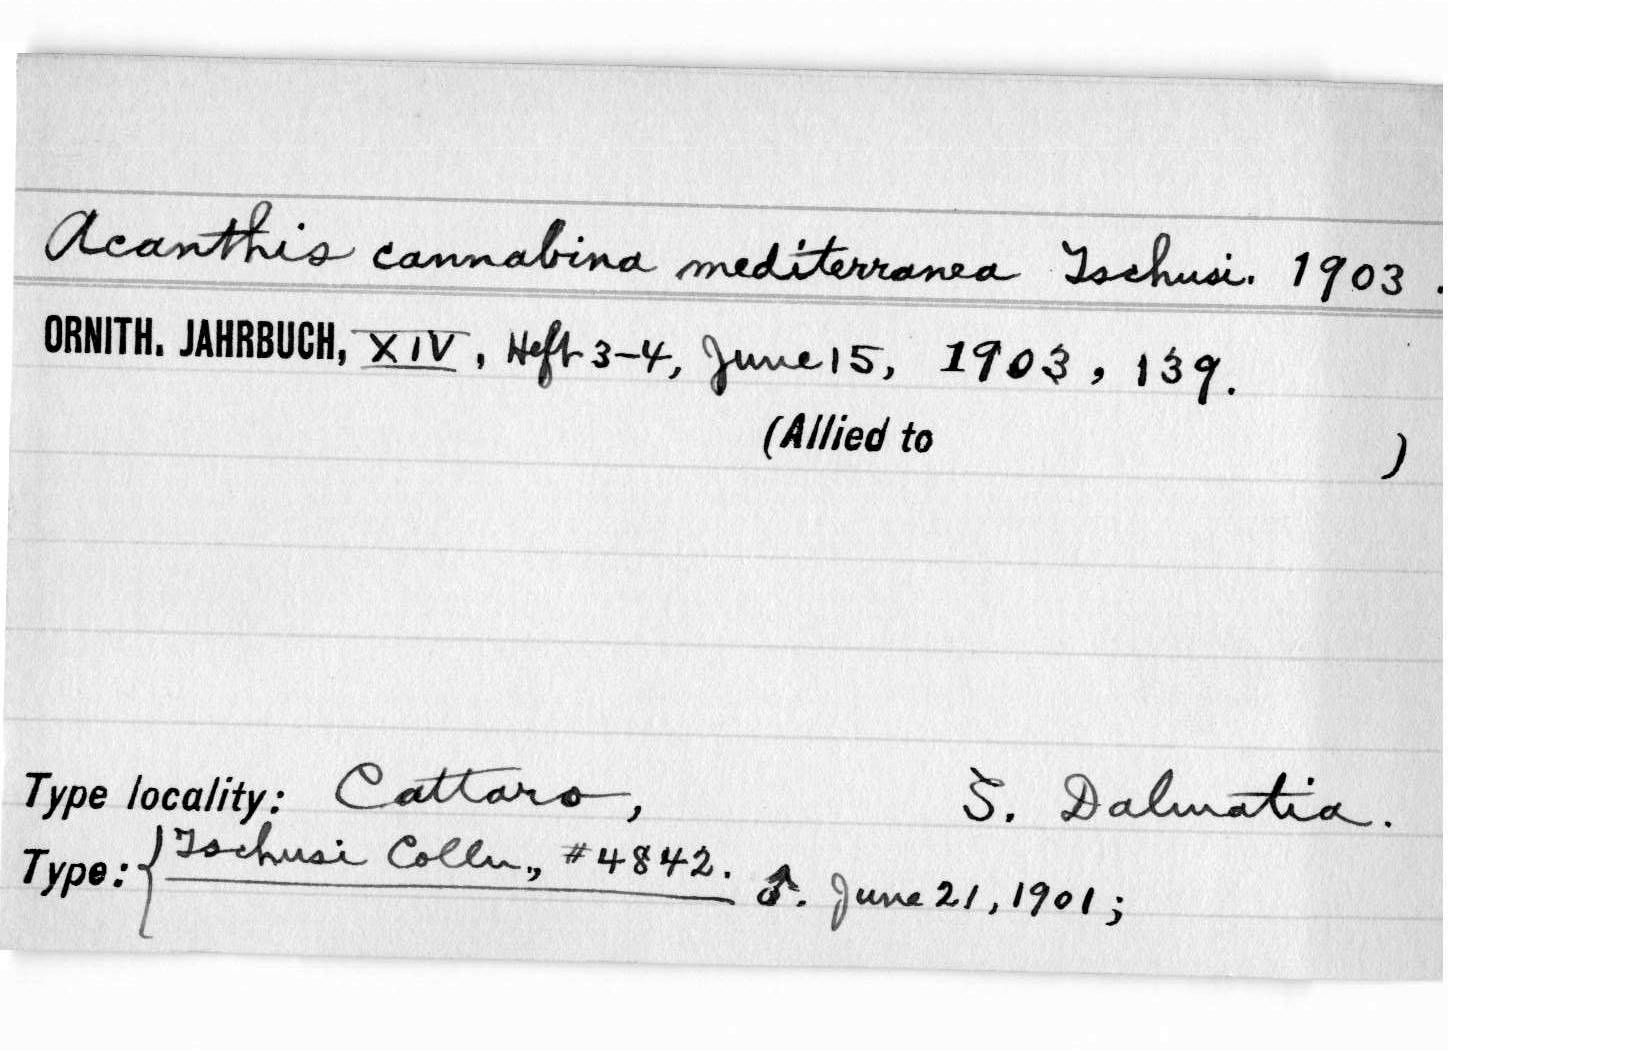 Acanthis cannabina mediterranea Tschusi. 1903.
ORNITH. JAHRBUCH, XIV, Heft 3-4, June 15, 1903, 139.
(Allied to )
Type locality: Cattaro, S. Dalmatia.
Type: { Tschusi Colln., #4842. ♂. June 21, 1901;